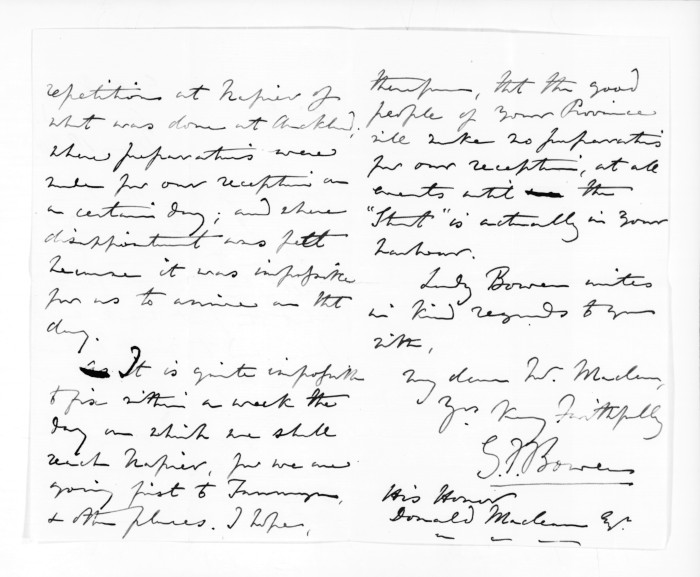 repetition at Napier of
what was done at Auckld,
where preparations were
made for our reception on
a certain day; and where
disappointment was felt
because it was impossible
for us to arrive on that
day.
It is quite impossible
to fix within a week the
day on which we shall
reach Napier, for we are
going first to
& other places. I hope,
therefore, that the good
people of your Province
will make no preparations
for our reception, at all
events until the
"Sturt" is actually in your
harbour.
Lady Bowen unites
in kind regards to you
with,
My dear Mr. Maclean,
Yrs Very Faithfully
G.F. Bowen
His Honor
Donald Maclean Esqr.